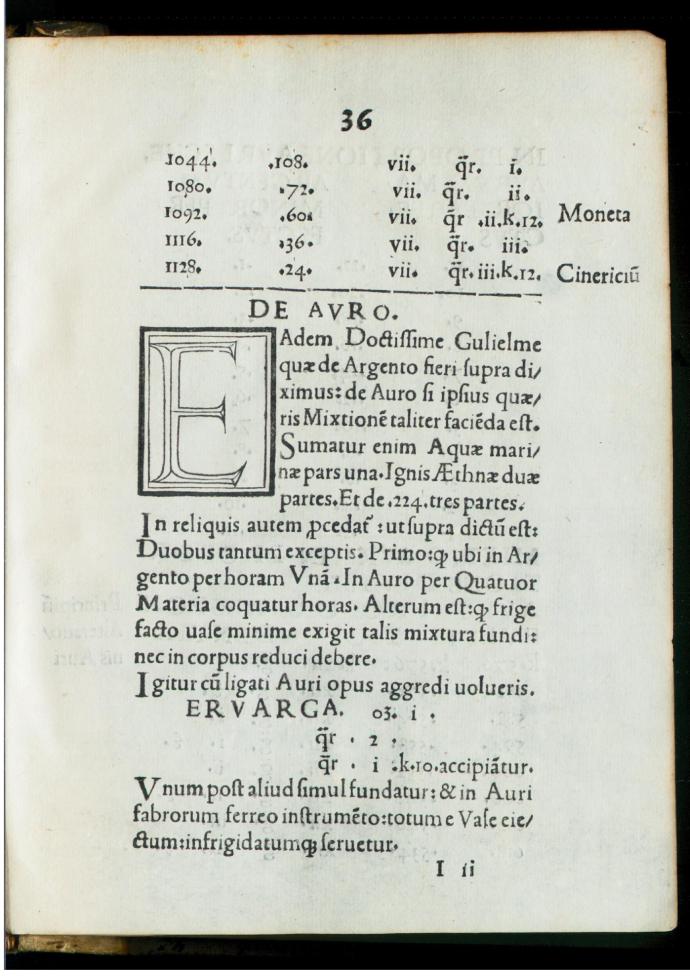 36
1044. .108. vii. q̃r. i.
1080. .72. vii. q̃r. ii.
1092. .60. vii. q̃r .ii.k.12. Moneta
1116. .36. vii. q̃r. iii.
1128. .24. vii. q̃r. iii.k.12. Cinericiũ
DE AVRO.
EAdem Doctissime Gulielme
quæ de Argento fieri supra di/
ximus: de Auro si ipsius quæ/
ris Mixtionẽ taliter faciẽda est.
Sumatur enim Aquæ mari/
næ pars una. Ignis Æthnæ duæ
partes. Et de .224. tres partes.
In reliquis autem ꝓcedat᷑ : ut supra dictũ est:
Duobus tantum exceptis. Primo: ꝙ ubi in Ar/
gento per horam Vnã . In Auro per Quatuor
Materia coquatur horas. Alterum est: ꝙ frige
facto uase minime exigit talis mixtura fundi:
nec in corpus reduci debere.
Igitur cũ ligati Auri opus aggredi uolueris.
ERVARGA. 03. i .
q̃r . 2 .
q̃r . i .k.10. accipiãtur.
Vnum post aliud simul fundatur: & in Auri
fabrorum ferreo instrumẽto: totum e Vase eie/
ctum: infrigidatumꝗ seruetur.
I ii